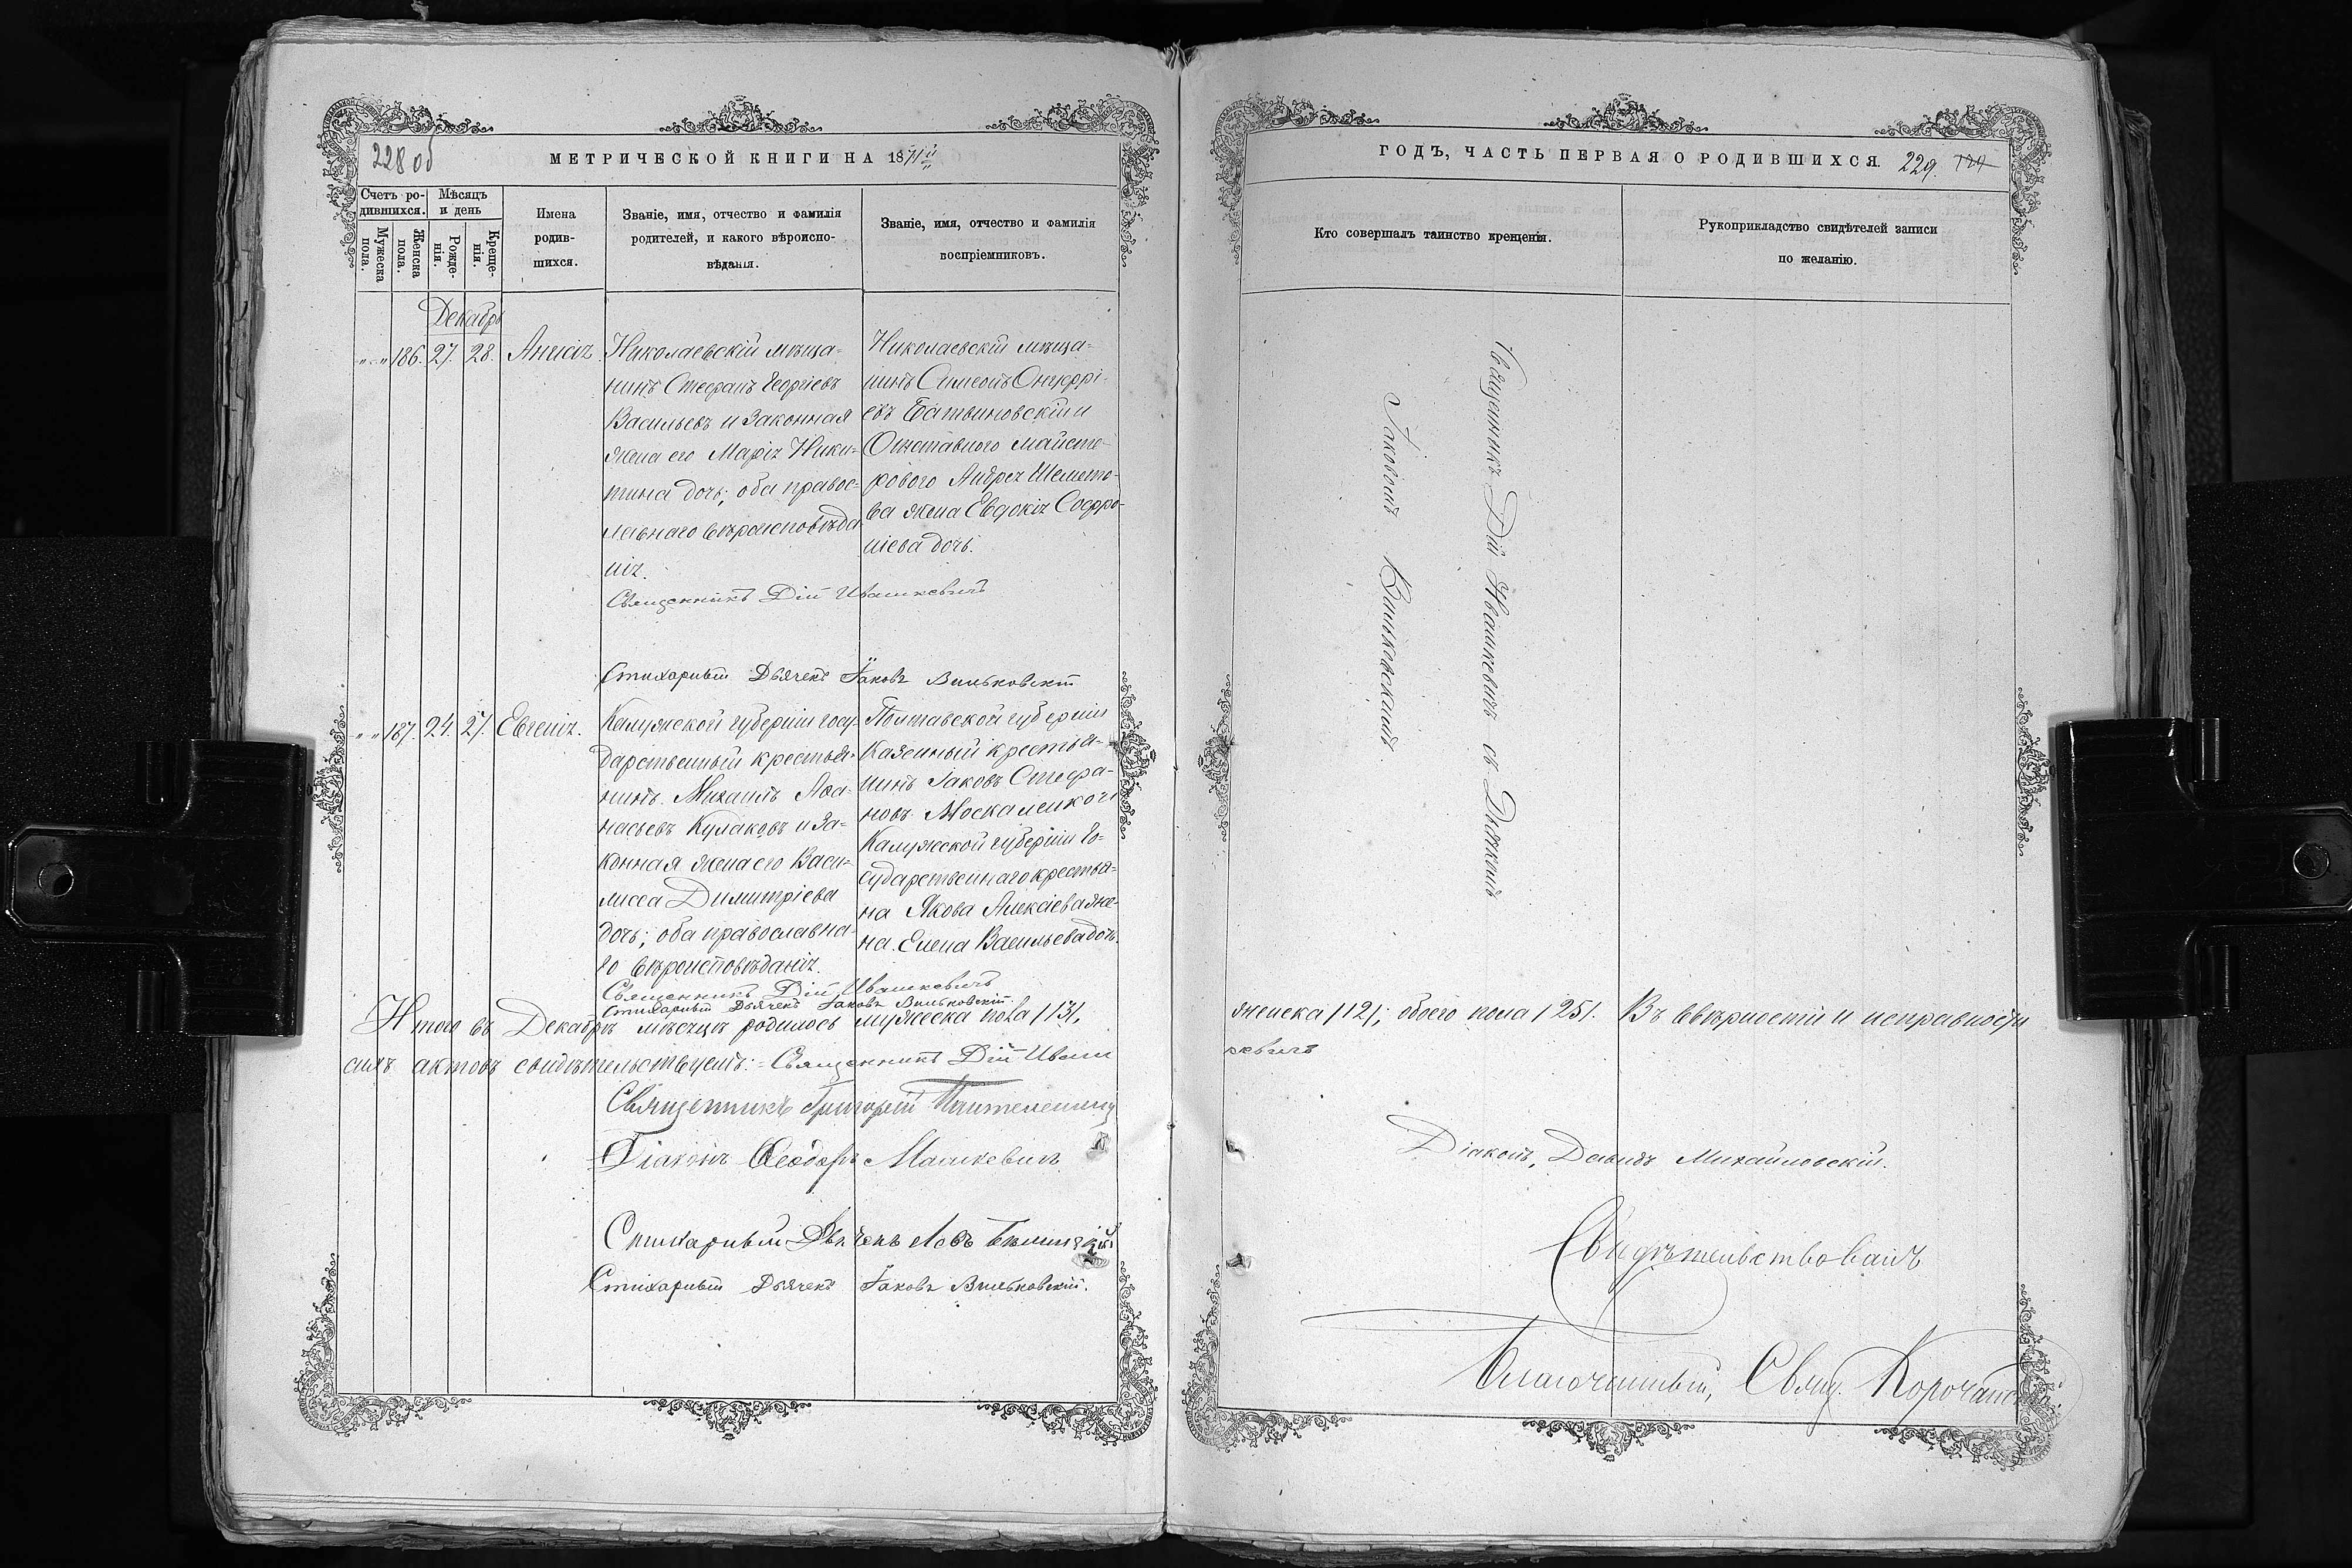 228 об
МЕТРИЧЕСКОЙ КНИГИ НА 1871й
Счетъ ро-
дившихся.
Мужеска
пола.
Женска
пола.
Мѣсяцъ
и день
Рожде-
нія.
Креще-
нія.
Имена
родив-
шихся.
Званіе, имя, отчество и фамилія
родителей, и какого вѣроиспо-
вѣданія.
Званіе, имя, отчество и фамилія
воспріемниковъ.
Декабрь
" " 186. 27. 28. Анисія
Николаевскій мѣща-
нинъ Стефанъ Георгіевъ
Васильевъ и Законная
жена его Марія Ники-
тина дочь; оба правос-
лавнаго вѣроисповѣда
нія.
Николаевскій мѣща-
нинъ Симеонъ Онуфрі-
евъ Батвиновскій и
Отставного мастe-
рового Андрея Шемето-
ва жена Евдокія Софро-
ніева дочь.
Священникъ Дій Ивашкевичъ
Стихарный Дьячекъ Іаковъ Виньковскій
" " 187. 24. 27. Евгенія.
Калужской губерніи госу-
дарственный крестья-
нинъ Михаилъ Аѳа-
насьевъ Кулаковъ и За-
конная жена его Васи-
лисса Димитріева
дочь; оба православна-
го вѣроисповѣданія.
Полтавской губерніи
Казенный крестья-
нинъ Іаковъ Стефа-
новъ Москаленко и
Калужской губерніи Го-
сударственнаго крестья-
на Якова Алексіева же-
на Елена Васильева дочь.
Священникъ Дій Ивашкевичъ
Стихарный Дьячекъ Іаковъ Виньковскій.
Итого въ Декабрѣ мѣсяцѣ родилось мужеска пола /13/,
сихъ актовъ свидѣтельствуемъ: Священникъ Дій Иваш
Священникъ Григорій
Діаконъ Ѳеодоръ Машкевичъ
Стихарный Дьячекъ
Стихарный Дьячекъ Іаковъ Виньковскій.
ГОДЪ, ЧАСТЬ ПЕРВАЯ О РОДИВШИХСЯ. 229.
Кто совершалъ таинство крещенія.
Рукоприкладство свидѣтелей записи
по желанію.
Священникъ Дій Ивашкевичъ съ Дьячкомъ
Іаковомъ Виньковскимъ.
женска /12/; обоего пола /25/. Въ вѣрности и исправности
кевичъ
Діаконъ, Давидъ Михайловскій.
Свидѣтельствовалъ
Благочинный, Свящ. Корочанскій